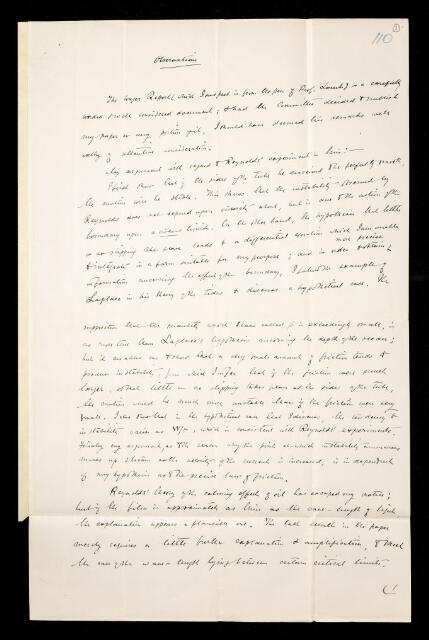 110
Observations
The longer Report (which I suspect is from the pen of Prof. Lamb) is a carefully
considered document; & had the Committee decided to publish
my paper or any portion of it, I should have deemed his remarks well
worthy of attentive consideration.
My argument with regard to Reynolds' experiment is this:—
I first show that if the sides of the tube be assumed to be perfectly smooth,
the motion will be stable. This shows that the instability observed by
Reynolds does not depend upon viscosity alone, but is due to the action of the
boundary upon a viscous liquid. On the other hand, the hypothesis that little
or no slipping takes place leads to a differential equation which I am unable
to integrate in a form suitable for my purpose; and in order to obtain more precise
information concerning the effect of the boundary, I follow the example of
Laplace in his theory of the tides, & discuss a hypothetical case. The
supposition that the quantity, which I have called β is exceedingly small, is
no more true than Laplace's hypothesis concerning the depth of the ocean;
but it enables me to show that a very small amount of friction tends to
produce instability, from which I infer that if the friction were much
larger, so that little or no slipping takes place at the sides of the tube,
the motion would be much more unstable than if the friction were very
small. I also show that in the hypothetical case that I discuss the tendency to
instability varies as W/μ, which is consistent with Reynolds' experiments.
Finally my argument, as to the reason why the point at which instability commences
moves up stream as the velocity of the current is increased, is independent
of any hypothesis as to the precise law of friction.
Reynolds' theory of the calming effect of oil has escaped my notice;
but if the film is approximately as thin as the wave-length of light
the explanation appears a plausible one. The last result in the paper
merely requires a little further explanation & amplification, to meet
the case of the wave-length lying between certain critical limits.